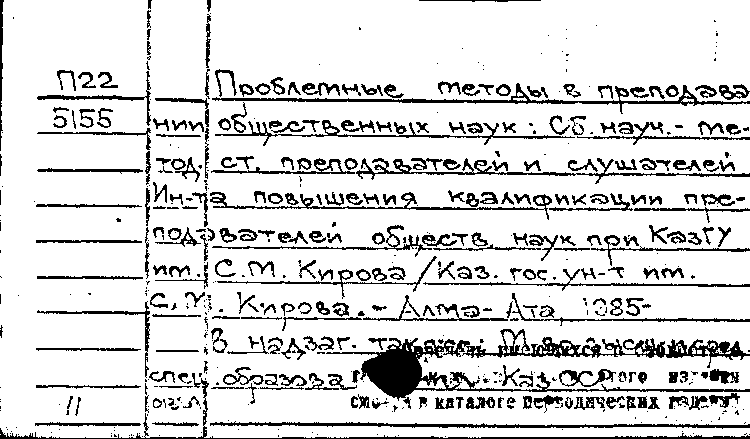 П22 Проблемные методы в преподава
5155 нии общественных наук: Сб. науч.- ме-
тод. ст. преподавателей и слушателей
Ин-та повышения квалификации пре-
подавателей обществ. наук при КазГУ
им. С.М. Кирова / Каз. гос. ун-т им.
С.М. Кирова. - Алма-Ата, 1985-
В надзаг. также: М-во высш. и сред.
спец. образова Каз.ССР
11
в каталоге периодических изданий